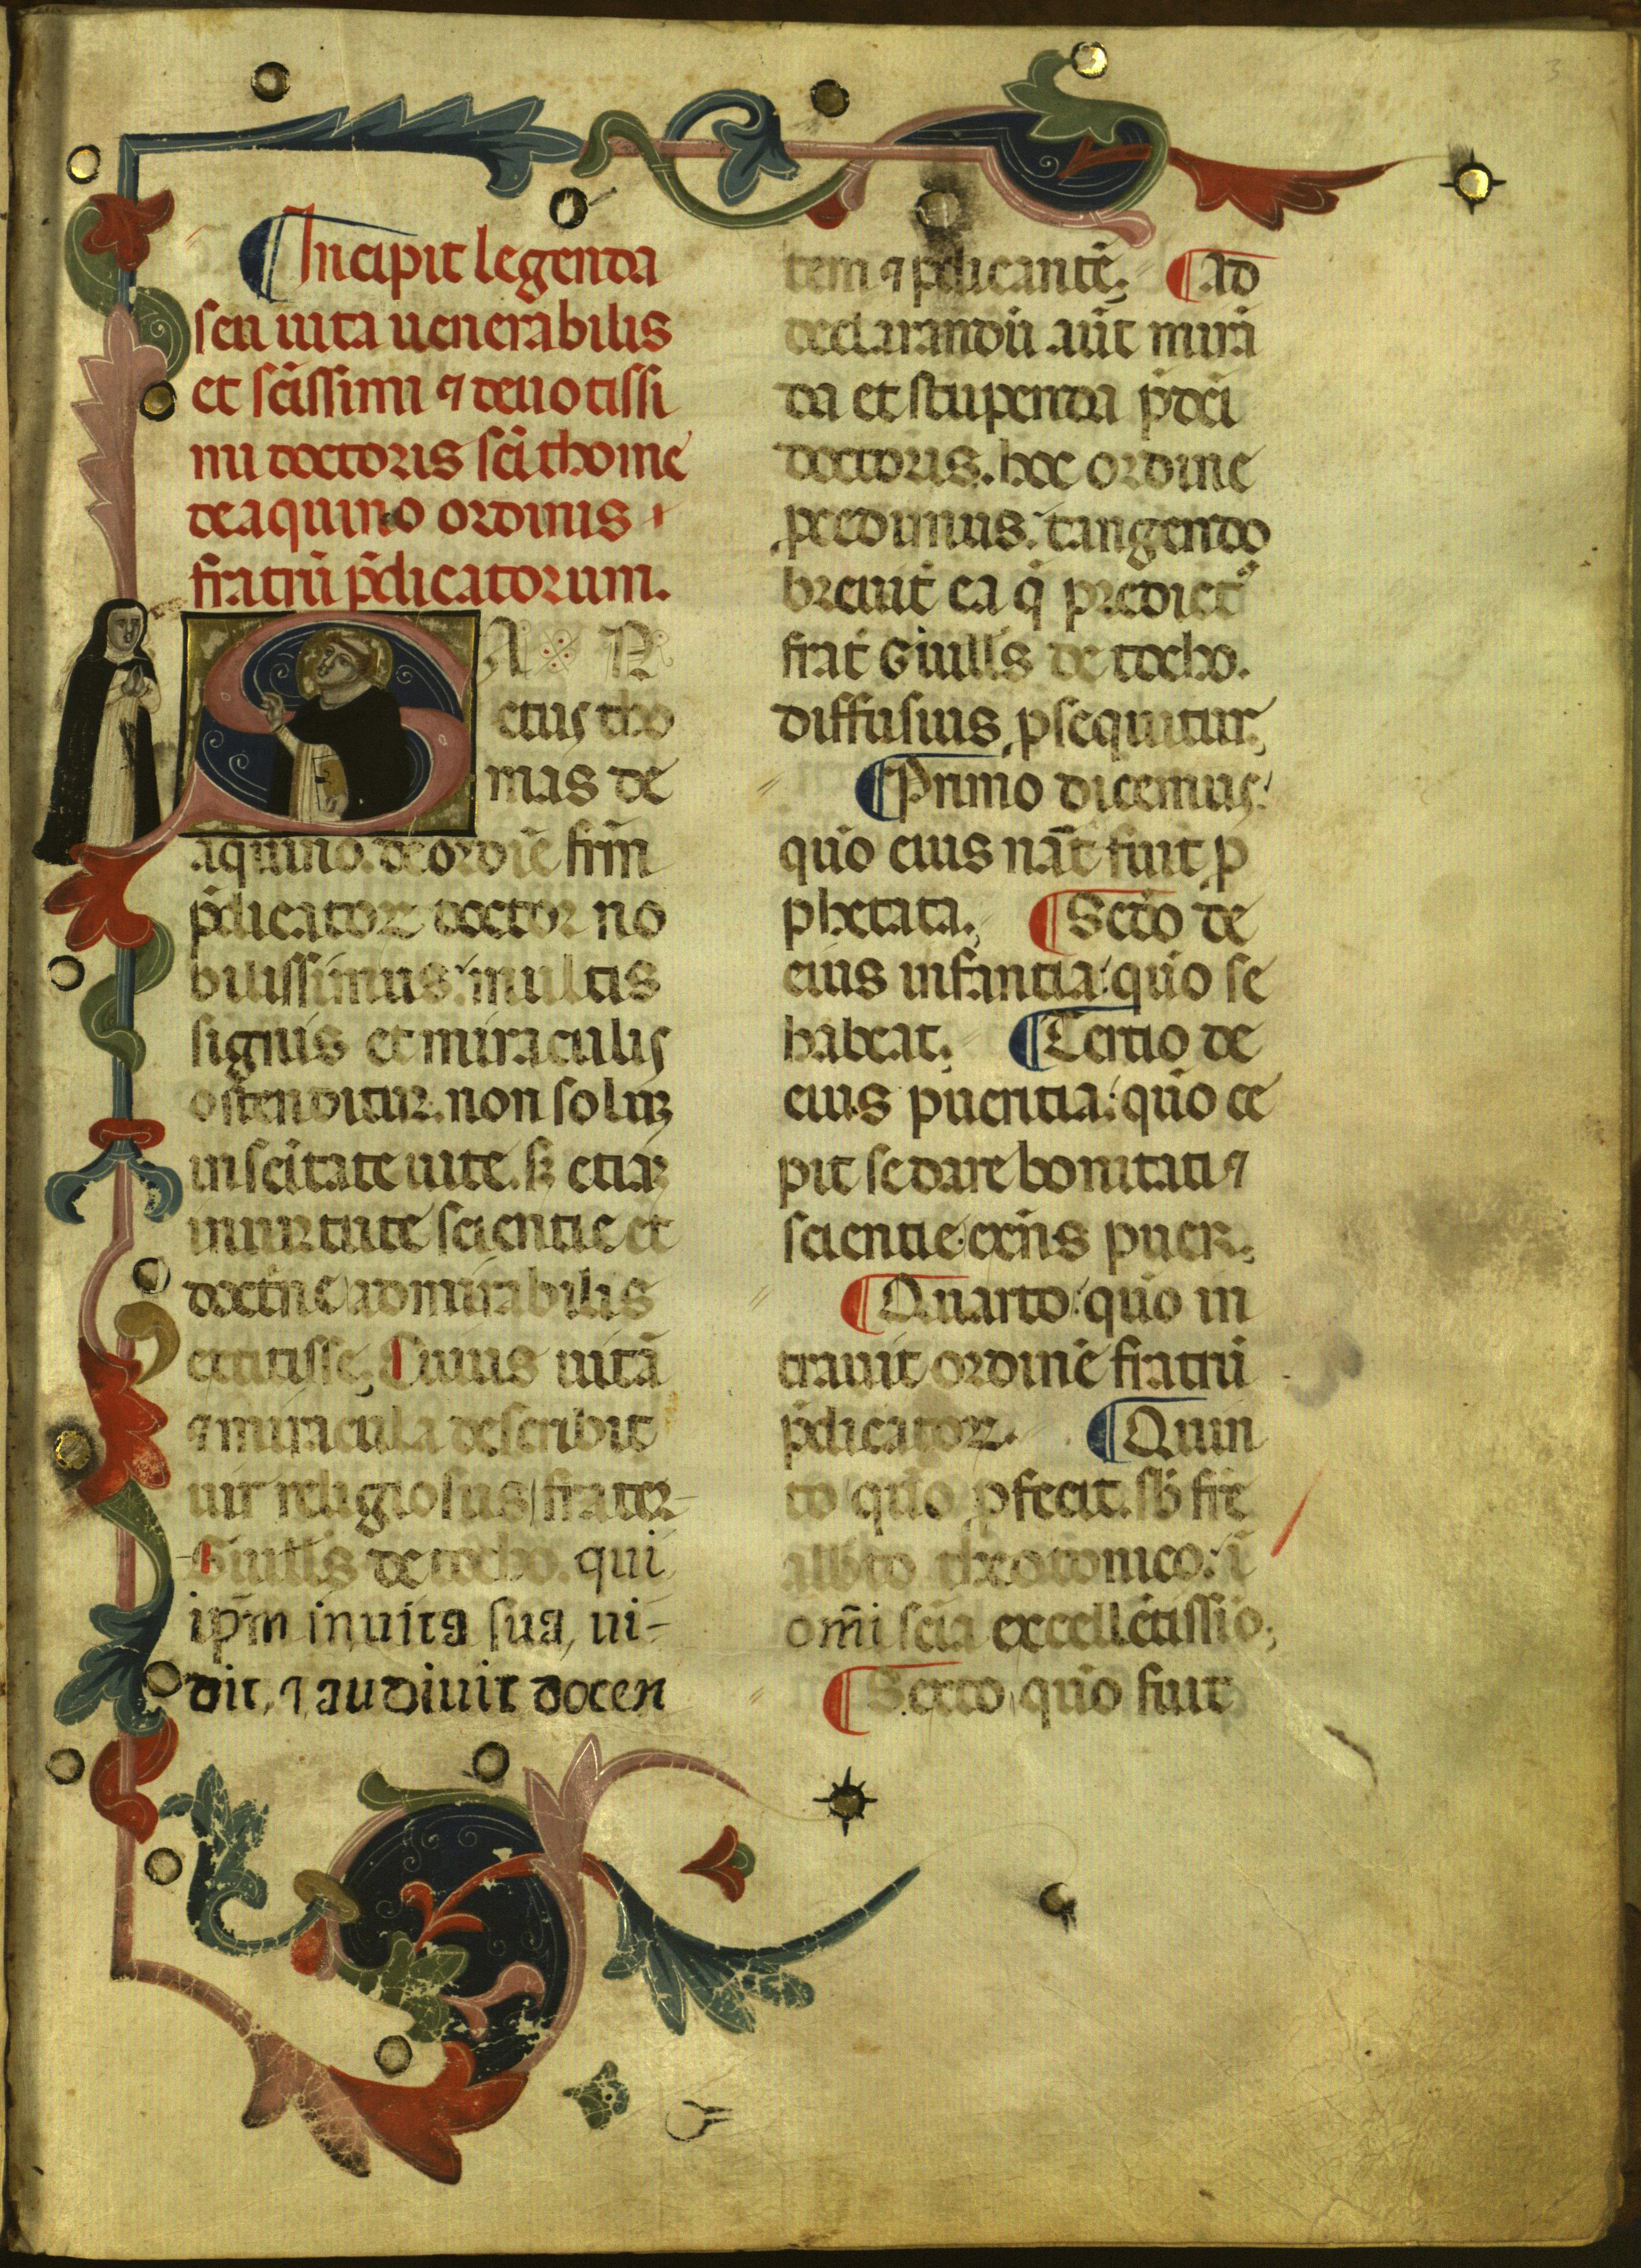 ¶ Incipit legenda
seu uita uenerabilis
et sc̄issimi ⁊ deuotissi
mi doctoris sc̄i thome
de aquino ordinis
fratrū p̄dicatorum.
SAN
ctus tho
mas de
aquino. de ordīe frm̄
p̄dicatoꝝ doctor no
bilissimus: multis
signis et miraculis
ostenditur. non soluꝫ
in sc̄itate uite. sꝫ etiaꝫ
in uirtute scientie et
doctͥne admirabilis
extitisse. Cuius uitā
⁊ miracula describit
uir religiosus frater
Guills de tocho. qui
ip̄m in uita sua, ui-
dit, ⁊ audiuit docen
tem ⁊ p̄dicantē; ¶ Ad
declarandū aūt mirā
da et stupenda p̄dc̄i
doctoris. hoc ordine
ꝓcedimus. tangendo
breuit̄ ea q̄ predict᷒
frat̄ Guills de tocho.
diffusius ꝓsequitur;
¶ Primo dicemus:
quō eius nāt fuit ꝓ
phetata; ¶ Sc̄do de
eius infantia: quō se
habeat; ¶ Tertio de
eius pueritia: quō ce
pit se dare bonitati ⁊
scientie exn̄s puer;
¶ Quarto: quō in
trauit ordinē fratrū
p̄dicatoꝝ. ¶ Quin
to quō ꝓfecit. sb̄ frē
alb̄to theotonico: ī
om̄i scīa excellētissīo;
¶ Sexto quō fuit
3